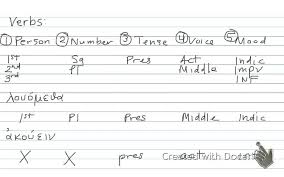 Verbs:
① Person ② Number ③ Tense ④ Voice ⑤ Mood
1st Sg Pres Act Indic
2nd Pl Middle Impv
3rd INF
λουόμεθα
1st Pl Pres Middle Indic
ἀκούειν
X X pres act
Created with Doceri